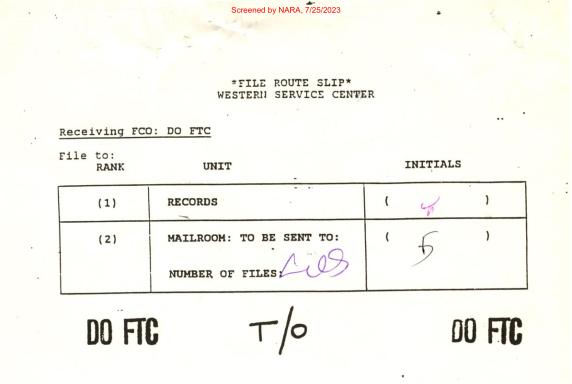 Screened by NARA, 7/25/2023
*FILE ROUTE SLIP*
WESTERN SERVICE CENTER
Receiving FCO: DO FTC
File to:
RANK UNIT INITIALS
(1) RECORDS ( )
(2) MAILROOM: TO BE SENT TO: ( )
NUMBER OF FILES:
DO FTC T/O DO FTC